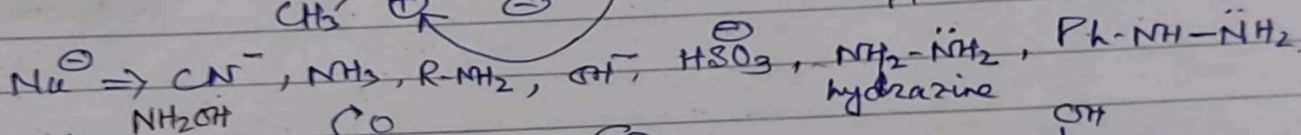 CH₃ ⊕ ⊖
Nu⊖ ⇒ CN⁻, NH₃, R-NH₂, OH⁻, HSO₃⊖, NH₂-N̈H₂, Ph-NH-N̈H₂
hydrazine
NH₂OH CO OH